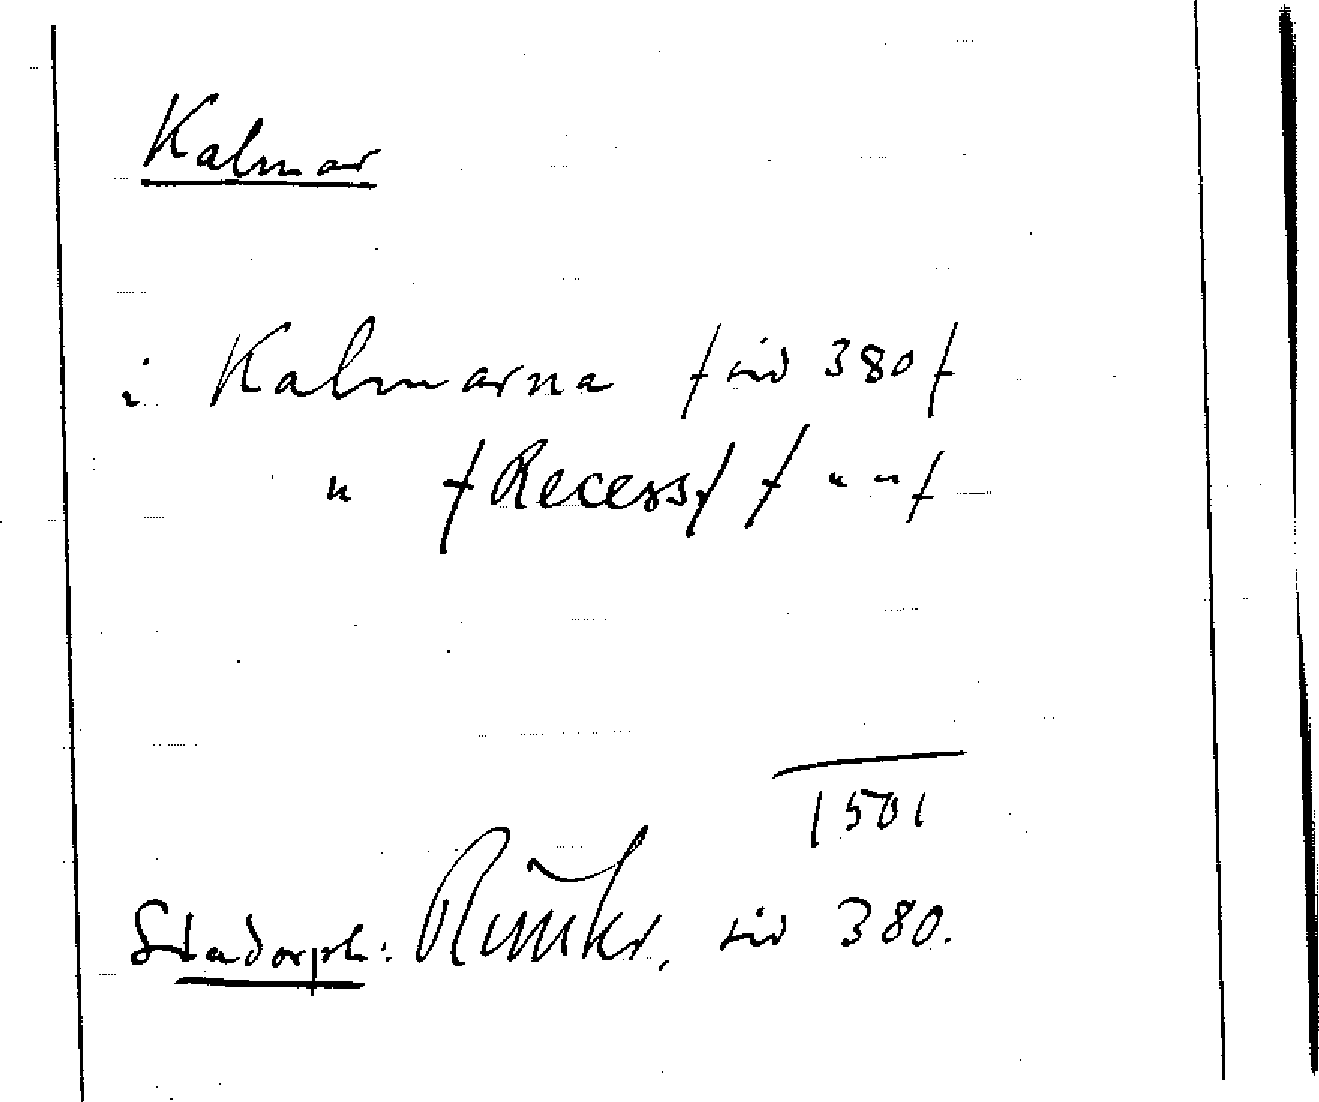 Kalmar
i Kalmarna / sid 380 /
" / Recess / / " " /
1501
Hadorph: Rimkr. sid 380.